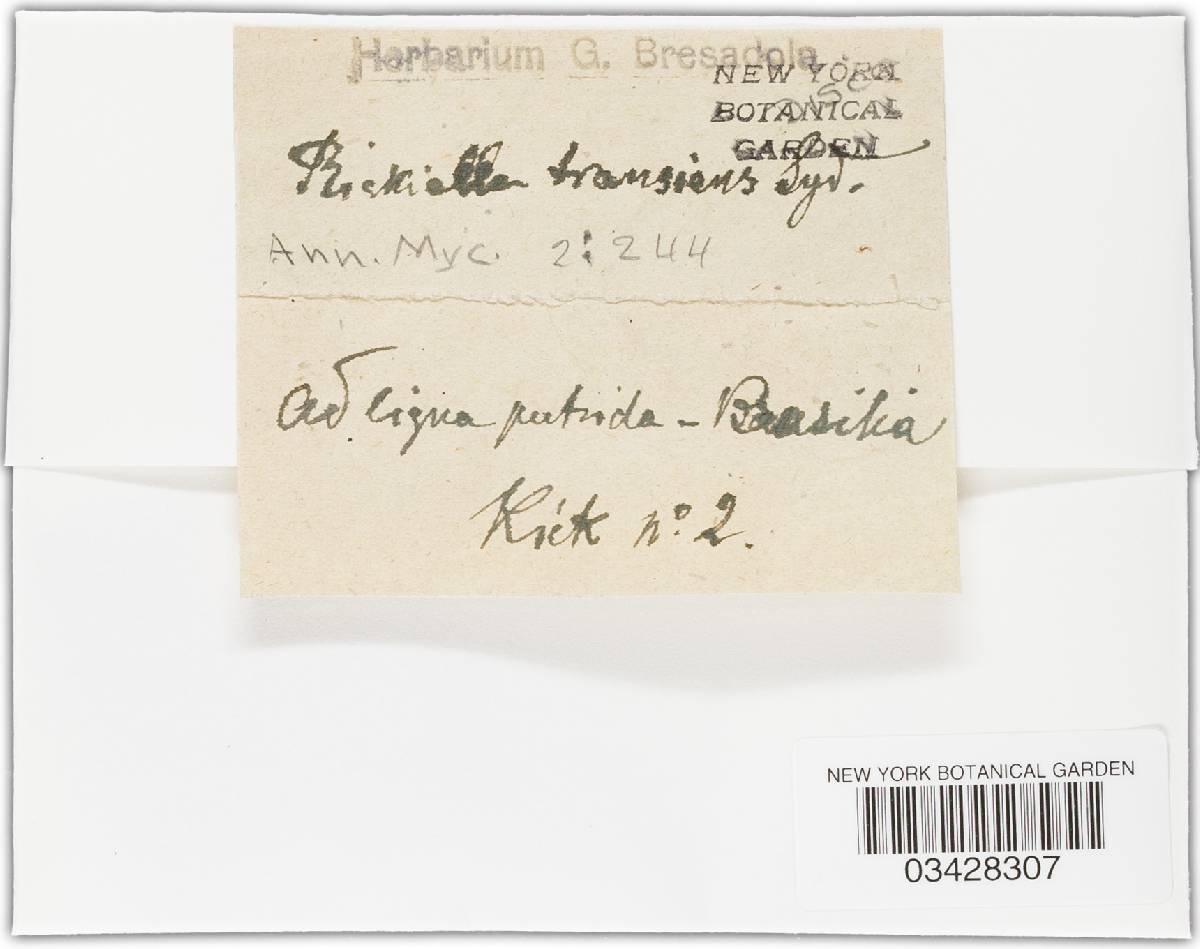 Herbarium G. Bresadola
NEW YORK
BOTANICAL
GARDEN
Rickiella transiens Syd.
Ann. Myc. 2: 244
Ad ligna putrida - Brasilia
Rick nº 2.
NEW YORK BOTANICAL GARDEN
03428307